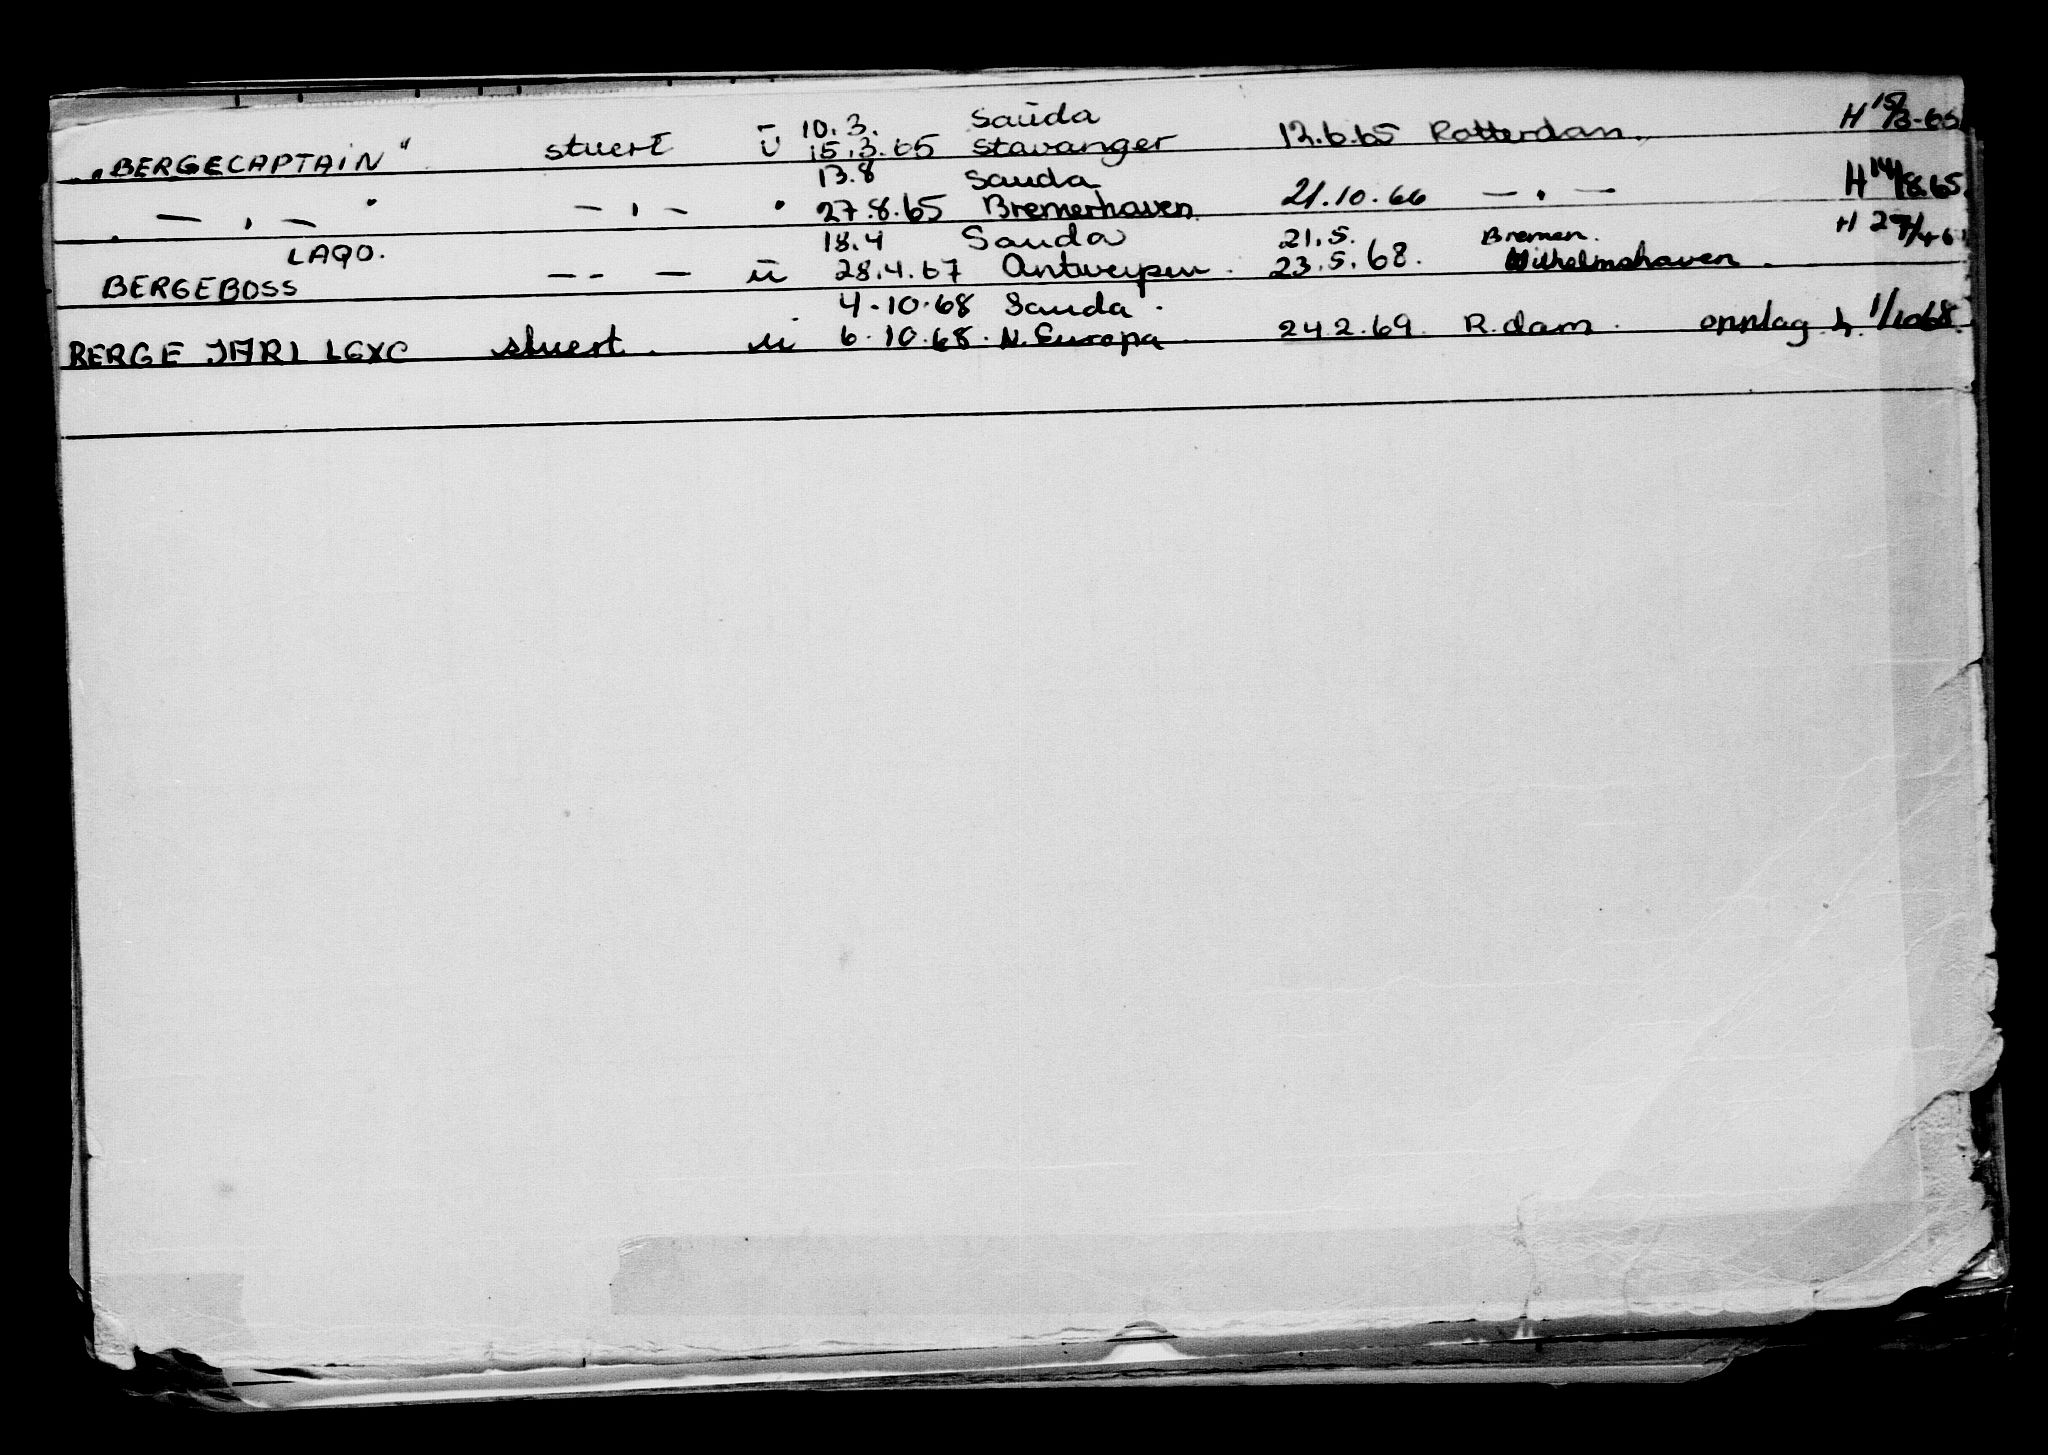 10.3. Sauda H 15/3-65
„BERGECAPTAIN" stuert ū 15.3.65 Stavanger 12.6.65 Rotterdam.
13.8 Sauda H 14/8.65.
" — , — " — , — " 27.8.65 Bremerhaven 21.10.66 — . —
LAQO. 18.4 Sauda 21.5. Bremen.
BERGEBOSS — - — ū 28.4.67 Antwerpen. 23.5.68. Wilhelmshaven.
4.10.68 Sauda.
BERGE JARL LGXC stuert. ū 6.10.68. N. Europa 24.2.69. R.dam. 1/10 68.